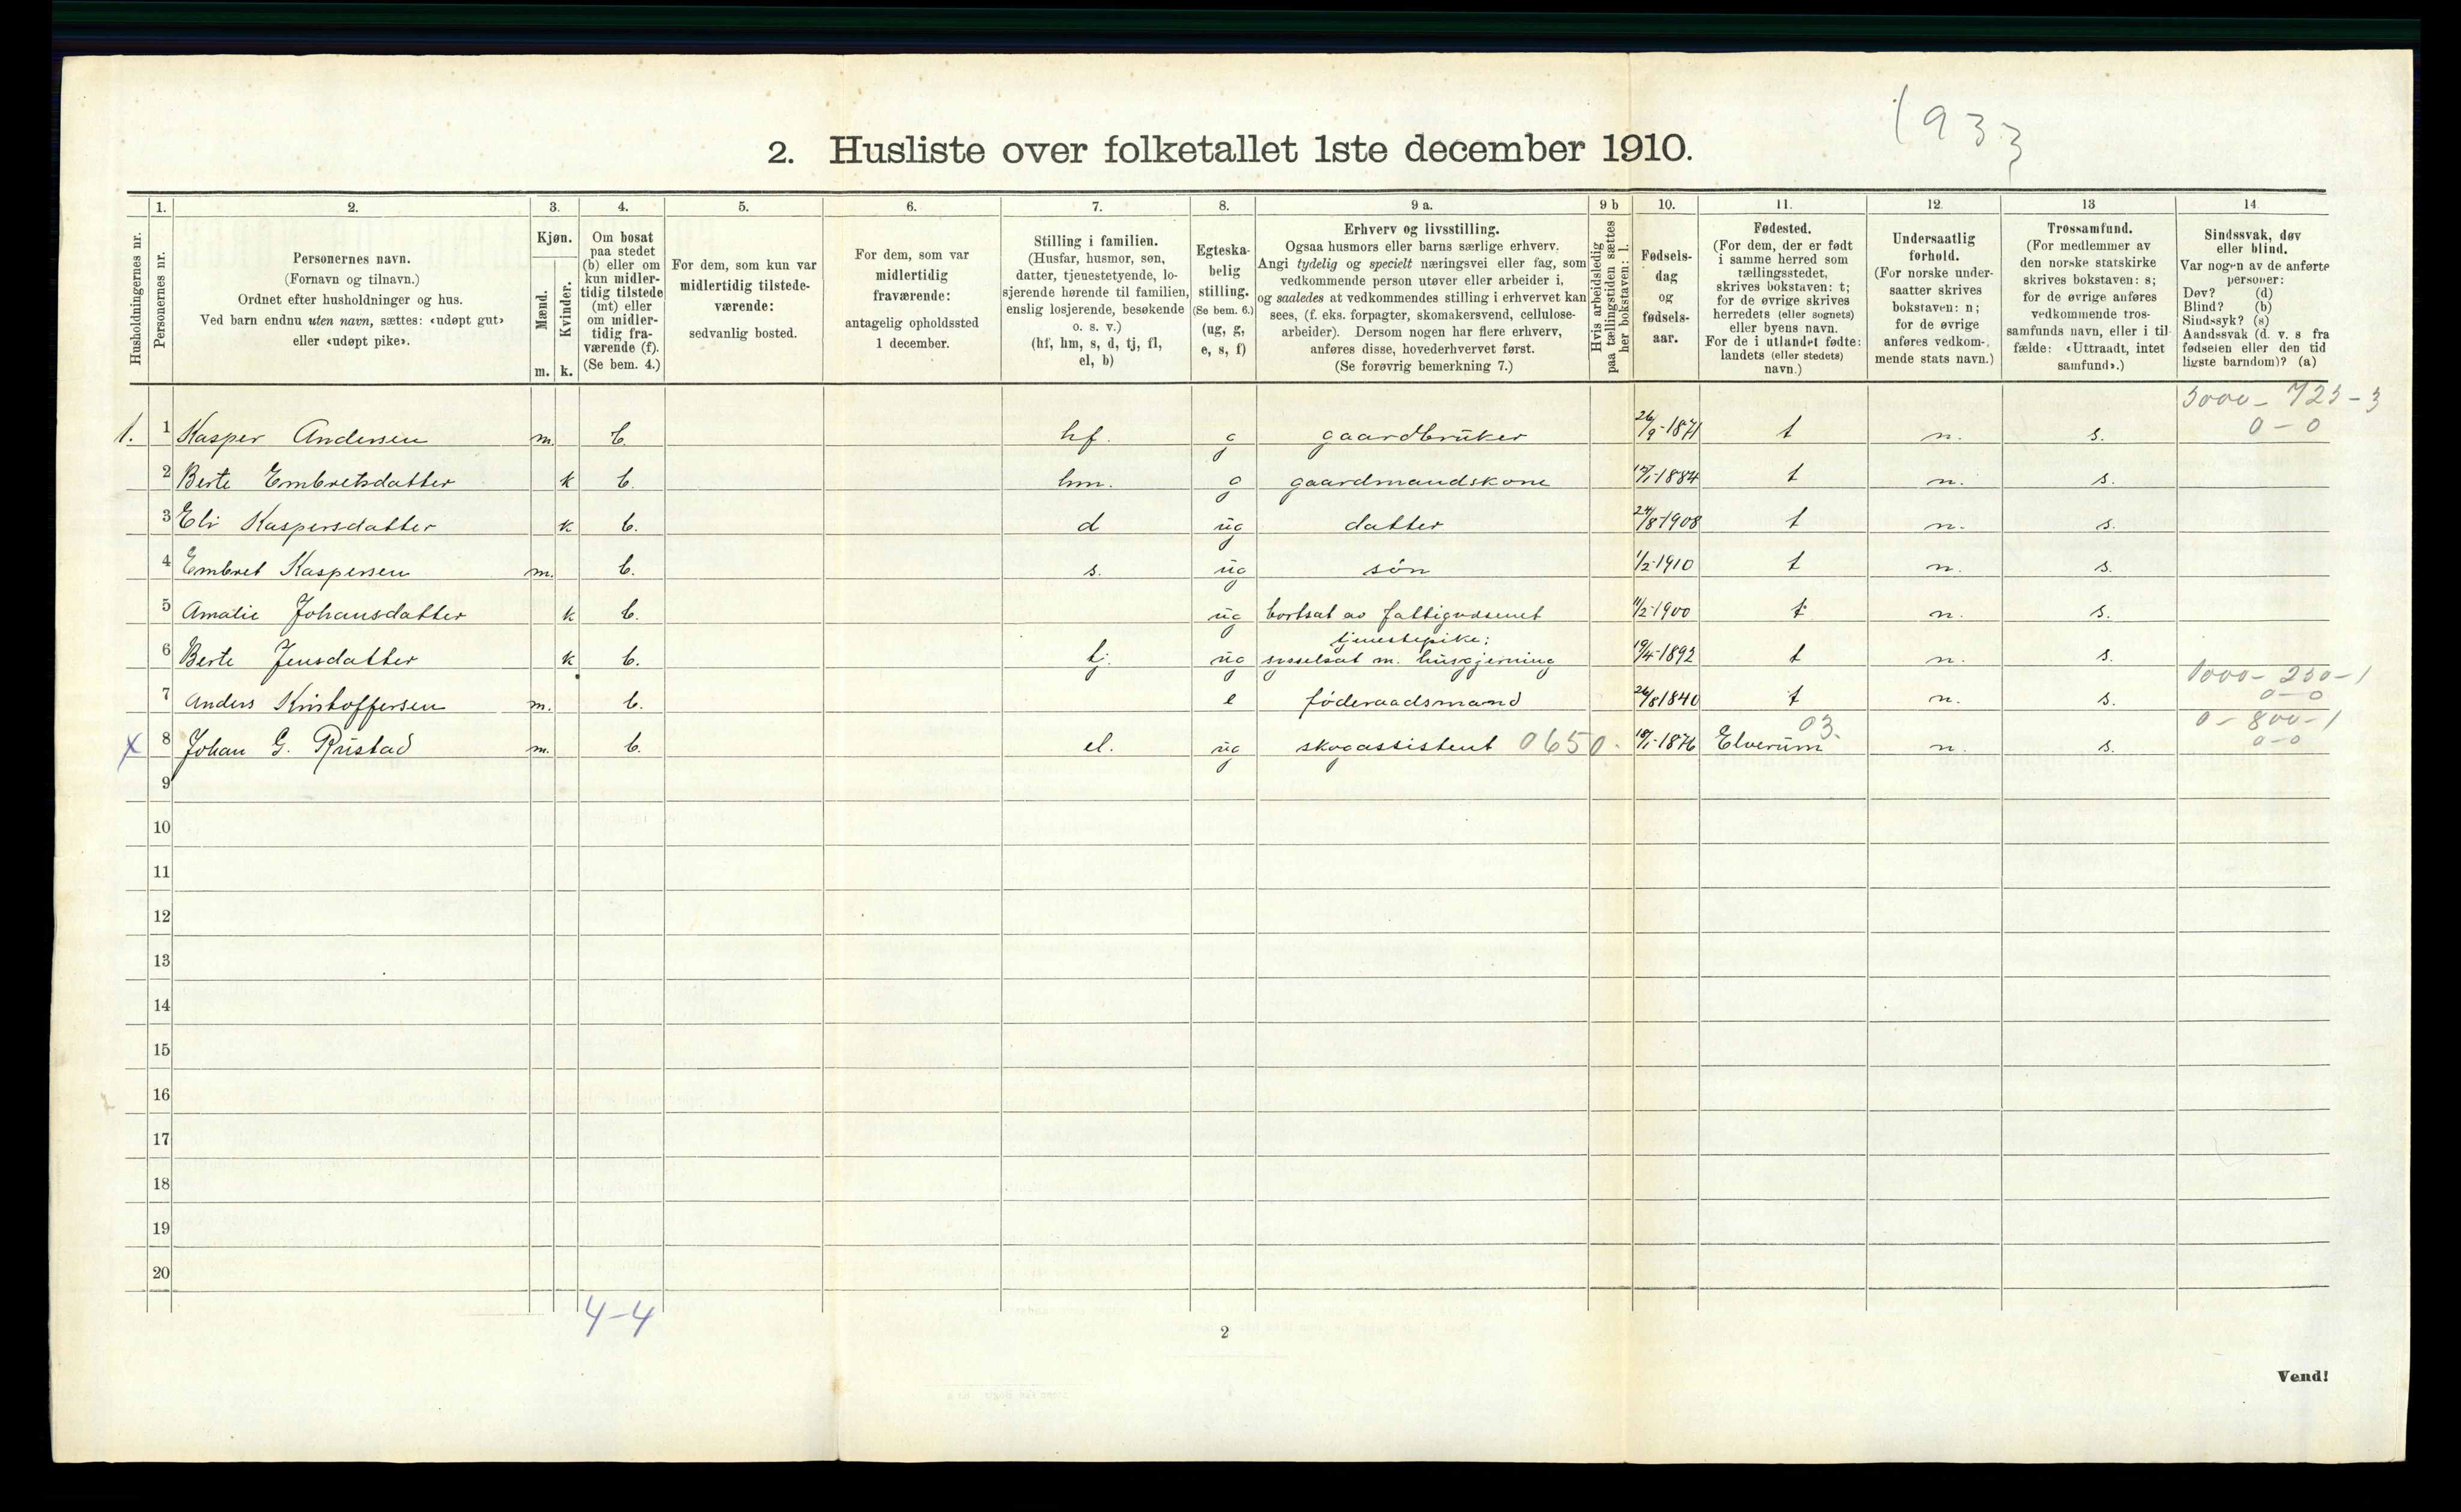 1933
2. Husliste over folketallet 1ste december 1910.
Husholdningernes nr.
1.
Personernes nr.
2.
Personernes navn.
(Fornavn og tilnavn.)
Ordnet efter husholdninger og hus.
Ved barn endnu uten navn, sættes: «udøpt gut»
eller «udøpt pike».
3.
Kjøn.
Mænd.
Kvinder.
m. k.
4.
Om bosat
paa stedet
(b) eller om
kun midler-
tidig tilstede
(mt) eller
om midler-
tidig fra-
værende (f).
(Se bem. 4.)
5.
For dem, som kun var
midlertidig tilstede-
værende:
sedvanlig bosted.
6.
For dem, som var
midlertidig
fraværende:
antagelig opholdssted
1 december.
7.
Stilling i familien.
(Husfar, husmor, søn,
datter, tjenestetyende, lo-
sjerende hørende til familien,
enslig losjerende, besøkende
o. s. v.)
(hf, hm, s, d, tj, fl,
el, b)
8.
Egteska-
belig
stilling.
(Se bem. 6.)
(ug, g,
e, s, f)
9 a.
Erhverv og livsstilling.
Ogsaa husmors eller barns særlige erhverv.
Angi tydelig og specielt næringsvei eller fag, som
vedkommende person utøver eller arbeider i,
og saaledes at vedkommendes stilling i erhvervet kan
sees, (f. eks. forpagter, skomakersvend, cellulose-
arbeider). Dersom nogen har flere erhverv,
anføres disse, hovederhvervet først.
(Se forøvrig bemerkning 7.)
9 b
Hvis arbeidsledig
paa tællingstiden sættes
her bokstaven: l.
10.
Fødsels-
dag
og
fødsels-
aar.
11.
Fødested.
(For dem, der er født
i samme herred som
tællingsstedet,
skrives bokstaven: t;
for de øvrige skrives
herredets (eller sognets)
eller byens navn.
For de i utlandet fødte:
landets (eller stedets)
navn.)
12.
Undersaatlig
forhold.
(For norske under-
saatter skrives
bokstaven: n;
for de øvrige
anføres vedkom-
mende stats navn.)
13
Trossamfund.
(For medlemmer av
den norske statskirke
skrives bokstaven: s;
for de øvrige anføres
vedkommende tros-
samfunds navn, eller i til-
fælde: «Uttraadt, intet
samfund».)
14
Sindssvak, døv
eller blind.
Var nogen av de anførte
personer:
Døv? (d)
Blind? (b)
Sindssyk? (s)
Aandssvak (d. v. s fra
fødselen eller den tid
ligste barndom)? (a)
3000 - 725 - 3
1. 1 Kasper Andersen m. b. hf. g gaardbruker 26/9-1871 t n. s. 0 - 0
2 Berte Embretsdatter k b. hm. g gaardmandskone 17/1-1884 t n. s.
3 Eli Kaspersdatter k b. d ug datter 24/8-1908 t n. s.
4 Embret Kaspersen m. b. s. ug søn 1/2-1910 t n. s.
5 Amalie Johansdatter k b. ug bortsat av fattigvæsenet 11/2-1900 t n. s.
tjenestepike;
6 Berte Jensdatter k b. tj. ug sysselsat m. husgjerning 19/4-1892 t n. s.
1000 - 250 - 1
7 Anders Kristoffersen m. b. e føderaadsmand 26/8 1840 t n. s. 0 - 0
03. 0 - 800 - 1
x 8 Johan G. Rustad m. b. el. ug skogassistent 0650. 18/1-1876 Elverum n. s. 0 - 0
9
10
11
12
13
14
15
16
17
18
19
20
4-4
2
Vend!